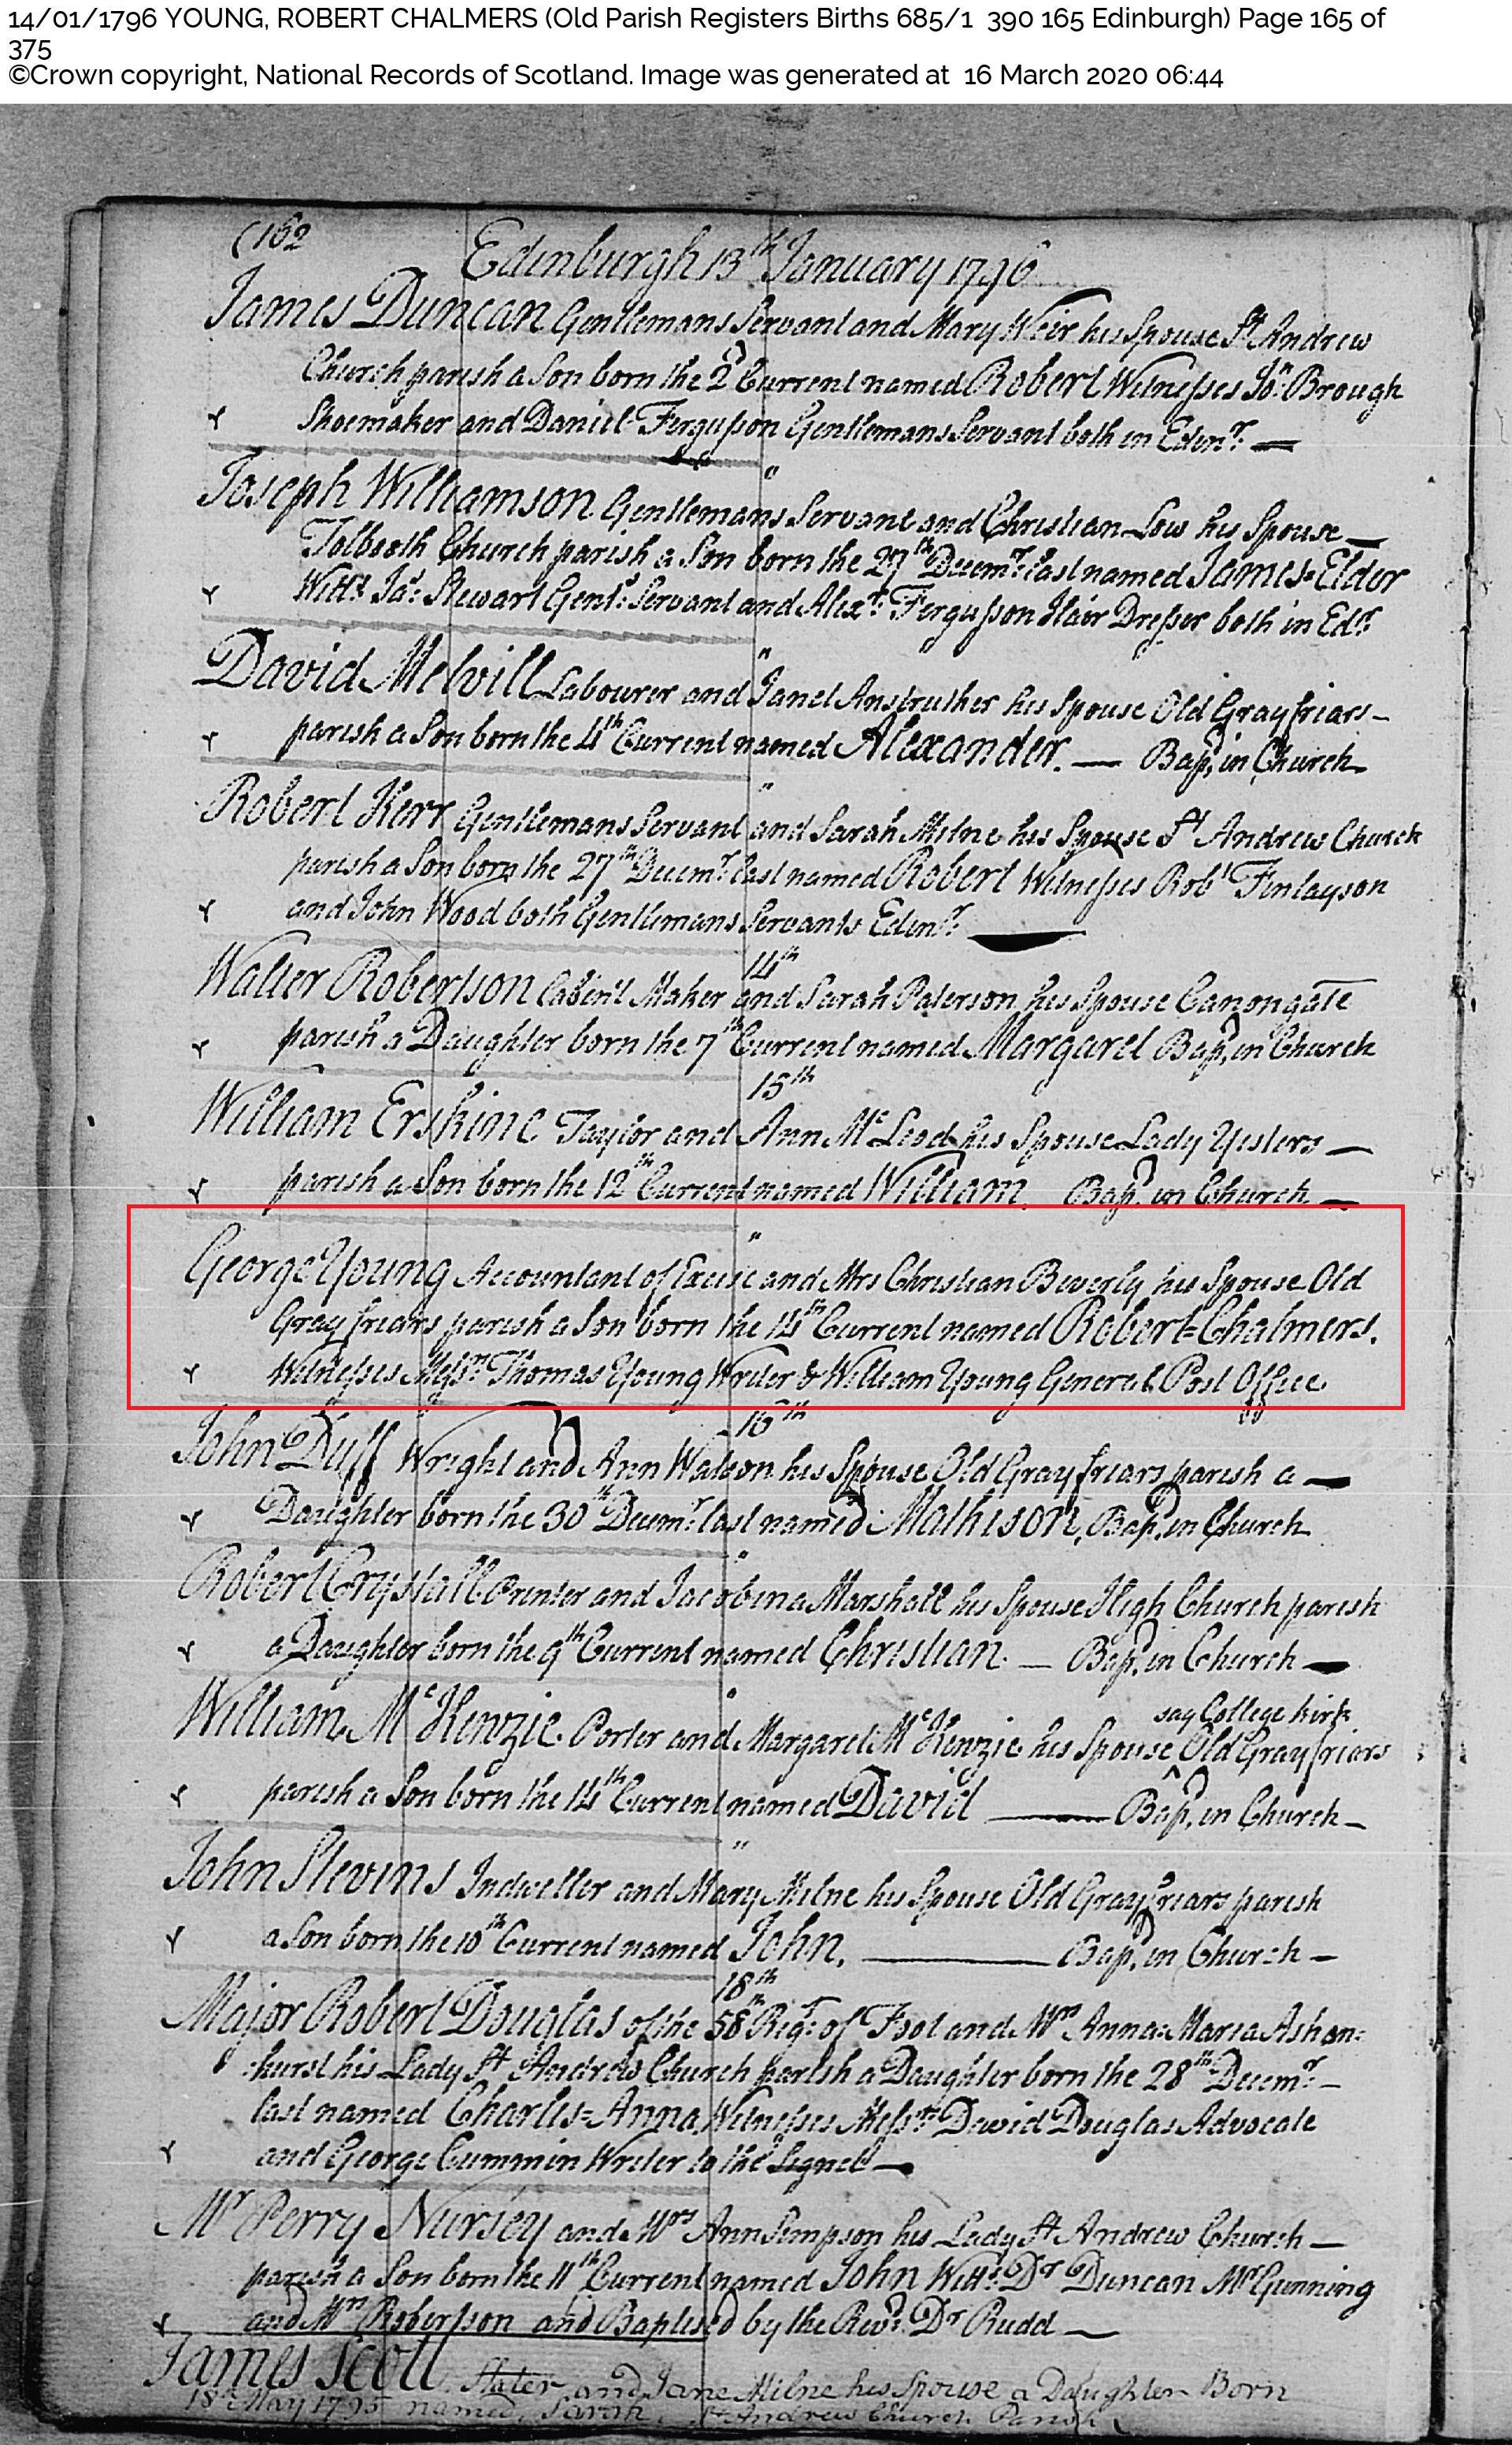 14/01/1796 YOUNG, ROBERT CHALMERS (Old Parish Registers Births 685/1 390 165 Edinburgh) Page 165 of
375
©Crown copyright, National Records of Scotland. Image was generated at 16 March 2020 06:44
(162
Edinburgh 13th January 1796
James Duncan Gentlemans Servant and Mary Weir his Spouse St Andrew
Church parish a Son born the 2d Current named Robert Witnesses Jon. Brough
Shoemaker and Daniel Fergusson Gentlemans Servant both in Edinr. —
"
Joseph Williamson Gentlemans Servant and Christian Low his Spouse —
Tolbooth Church parish a Son born the 27th Decemr. last named James=Elder
Witts. Jas. Stewart Gents. Servant and Alexr. Fergusson Hair Dresser both in Edr.
"
David Melvill Labourer and Janet Anstruther his Spouse Old Grayfriars —
parish a Son born the 4th Current named Alexander. — Bapd. in Church
"
Robert Kerr Gentlemans Servant and Sarah Milne his Spouse St Andrew Church
parish a Son born the 27th Decemr. last named Robert Witnesses Robt Finlayson
and John Wood both Gentlemans Servants Edinr. —
14th
Walter Robertson Cabin't Maker and Sarah Paterson his Spouse Canongate
parish a Daughter born the 7th Current named Margaret Bapd. in Church
15th
William Erskine Taylor and Ann McLeod his Spouse Lady Yesters —
parish a Son born the 12th Current named William. Bapd. in Church —
"
George Young Accountant of Excise and Mrs Christian Beverly his Spouse Old
Gray friars parish a Son born the 14th Current named Robert=Chalmers.
Witnesses Messrs. Thomas Young Writer & William Young General Post Office.
16th
John Duff Wright and Ann Watson his Spouse Old Grayfriars parish a —
Daughter born the 30th Decemr. last named Mathison, Bapd. in Church
"
Robert Crystall Printer and Jacobina Marshall his Spouse High Church parish
a Daughter born the 9th Current named Christian. — Bapd. in Church —
"
say College Kirk
William McKenzie Porter and Margaret McKenzie his Spouse Old Grayfriars
parish a Son born the 14th Current named David — Bapd. in Church —
"
John Stevens Indweller and Mary Milne his Spouse Old Grayfriars parish
a Son born the 10th Current named John. — Bapd. in Church —
18th
Major Robert Douglas of the 58th Regt. of Foot and Mrs Anna=Maria Ashen=
=hurst his Lady St Andrew Church parish a Daughter born the 28th Decemr. —
last named Charles=Anna, Witnesses Messrs. David Douglas Advocate
and George Cummin Writer to the Signet —
Mr Perry Nursey and Mrs Ann Simpson his Lady St Andrew Church —
parish a Son born the 11th Current named John Witts. Dr Duncan Mr Gunning
and Mrs Robertson and Baptised by the Revd. Dr Rudd —
James Scott Slater and Jane Milne his Spouse a Daughter Born
18th May 1795 named Sarah. St Andrew Church Parish